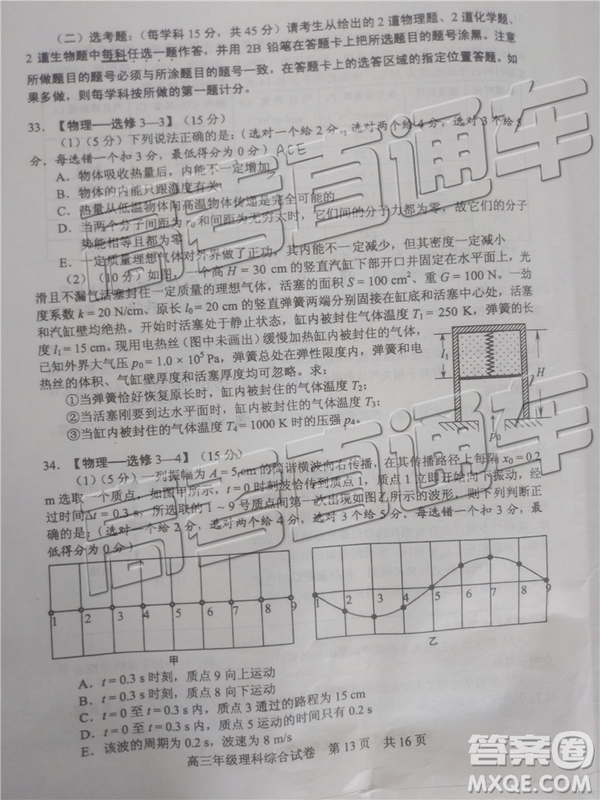 （二）选考题：（每学科15分，共45分）请考生从给出的2道物理题、2道化学题、
2道生物题中每科任选一题作答，并用2B铅笔在答题卡上把所选题目的题号涂黑。注意
所做题目的题号必须与所涂题目的题号一致，在答题卡上的选答区域的指定位置答题。如
果多做，则每学科按所做的第一题计分。
33．【物理──选修3—3】（15分）
（1）（5分）下列说法正确的是：（选对一个给2分，选对两个给4分，选对3个给5
分．每选错一个扣3分，最低得分0分）ACE
A．物体吸收热量后，内能不一定增加
B．物体的内能只跟温度有关
C．热量从低温物体向高温物体传递是完全可能的
D．当两个分子间距为r0和间距为无穷大时，它们间的分子力都为零，故它们的分子
势能相等且都为零
E．一定质量理想气体对外界做了正功，其内能不一定减少，但其密度一定减小
（2）（10分）如图，一个高H＝30 cm的竖直汽缸下部开口并固定在水平面上，光
滑且不漏气活塞封住一定质量的理想气体，活塞的面积S＝100 cm²、重G＝100 N。一劲
度系数k＝20 N/cm、原长l0＝20 cm的竖直弹簧两端分别固接在缸底和活塞中心处，活塞
和汽缸壁均绝热。开始时活塞处于静止状态，缸内被封住的气体温度T1＝250 K，弹簧的长
度l1＝15 cm。现用电热丝（图中未画出）缓慢加热缸内被封住的气体，
已知外界大气压p0＝1.0×10⁵Pa，弹簧总处在弹性限度内，弹簧和电
热丝的体积、气缸壁厚度和活塞厚度均可忽略。求：
①当弹簧恰好恢复原长时，缸内被封住的气体温度T2；
②当活塞刚要到达水平面时，缸内被封住的气体温度T3；
③当缸内被封住的气体温度T4＝1000 K时的压强p4。
l1
H
p0
34．【物理──选修3—4】（15分）
（1）（5分）一列振幅为A＝5 cm的简谐横波向右传播，在其传播路径上每隔x0＝0.2
m选取一个质点，如图甲所示，t＝0时刻波恰传到质点1，质点1立即开始向下振动，经
过时间Δt＝0.3 s，所选取的1～9号质点间第一次出现如图乙所示的波形，则下列判断正
确的是：（选对一个给2分，选对两个给4分，选对3个给5分．每选错一个扣3分，最
低得分为0分）
1 2 3 4 5 6 7 8 9
甲
1 2 3 4 5 6 7 8 9
乙
A．t＝0.3 s时刻，质点9向上运动
B．t＝0.3 s时刻，质点8向下运动
C．t＝0至t＝0.3 s内，质点3通过的路程为15 cm
D．t＝0至t＝0.3 s内，质点5运动的时间只有0.2 s
E．该波的周期为0.2 s，波速为8 m/s
高三年级理科综合试卷 第13页 共16页
高考直通车
高考直通车
答案卷
MXQE.COM